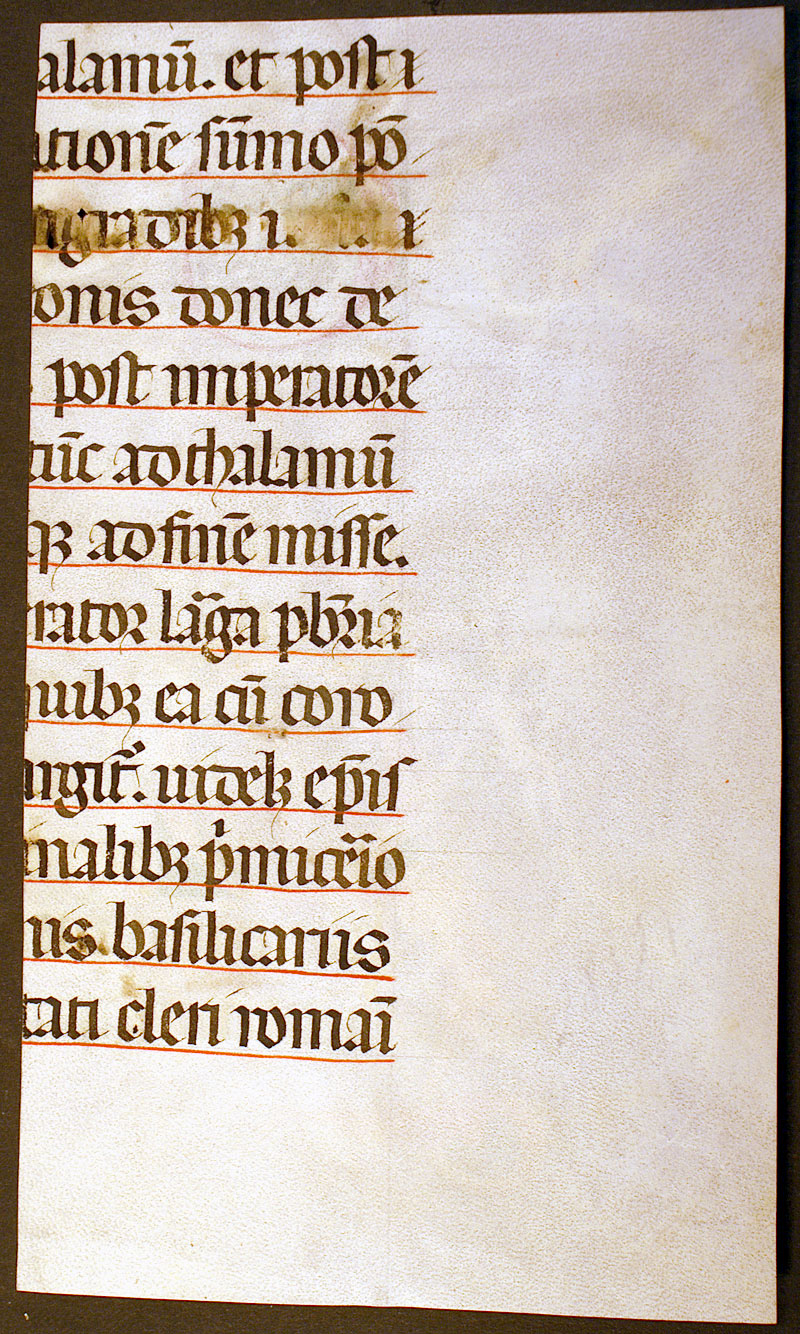 alamū. et post i
ationē sūmo pō
gradibꝫ i
onis donec de
post imperatorē
tūc ad thalamū
qꝫ ad finē misse.
rator larga pbr̄ia
uibꝫ ea cū coro
rgit᷑. uidelꝫ ep̄is
nalibꝫ pͥmicerio
uis basilicariis
tati cleri romāi